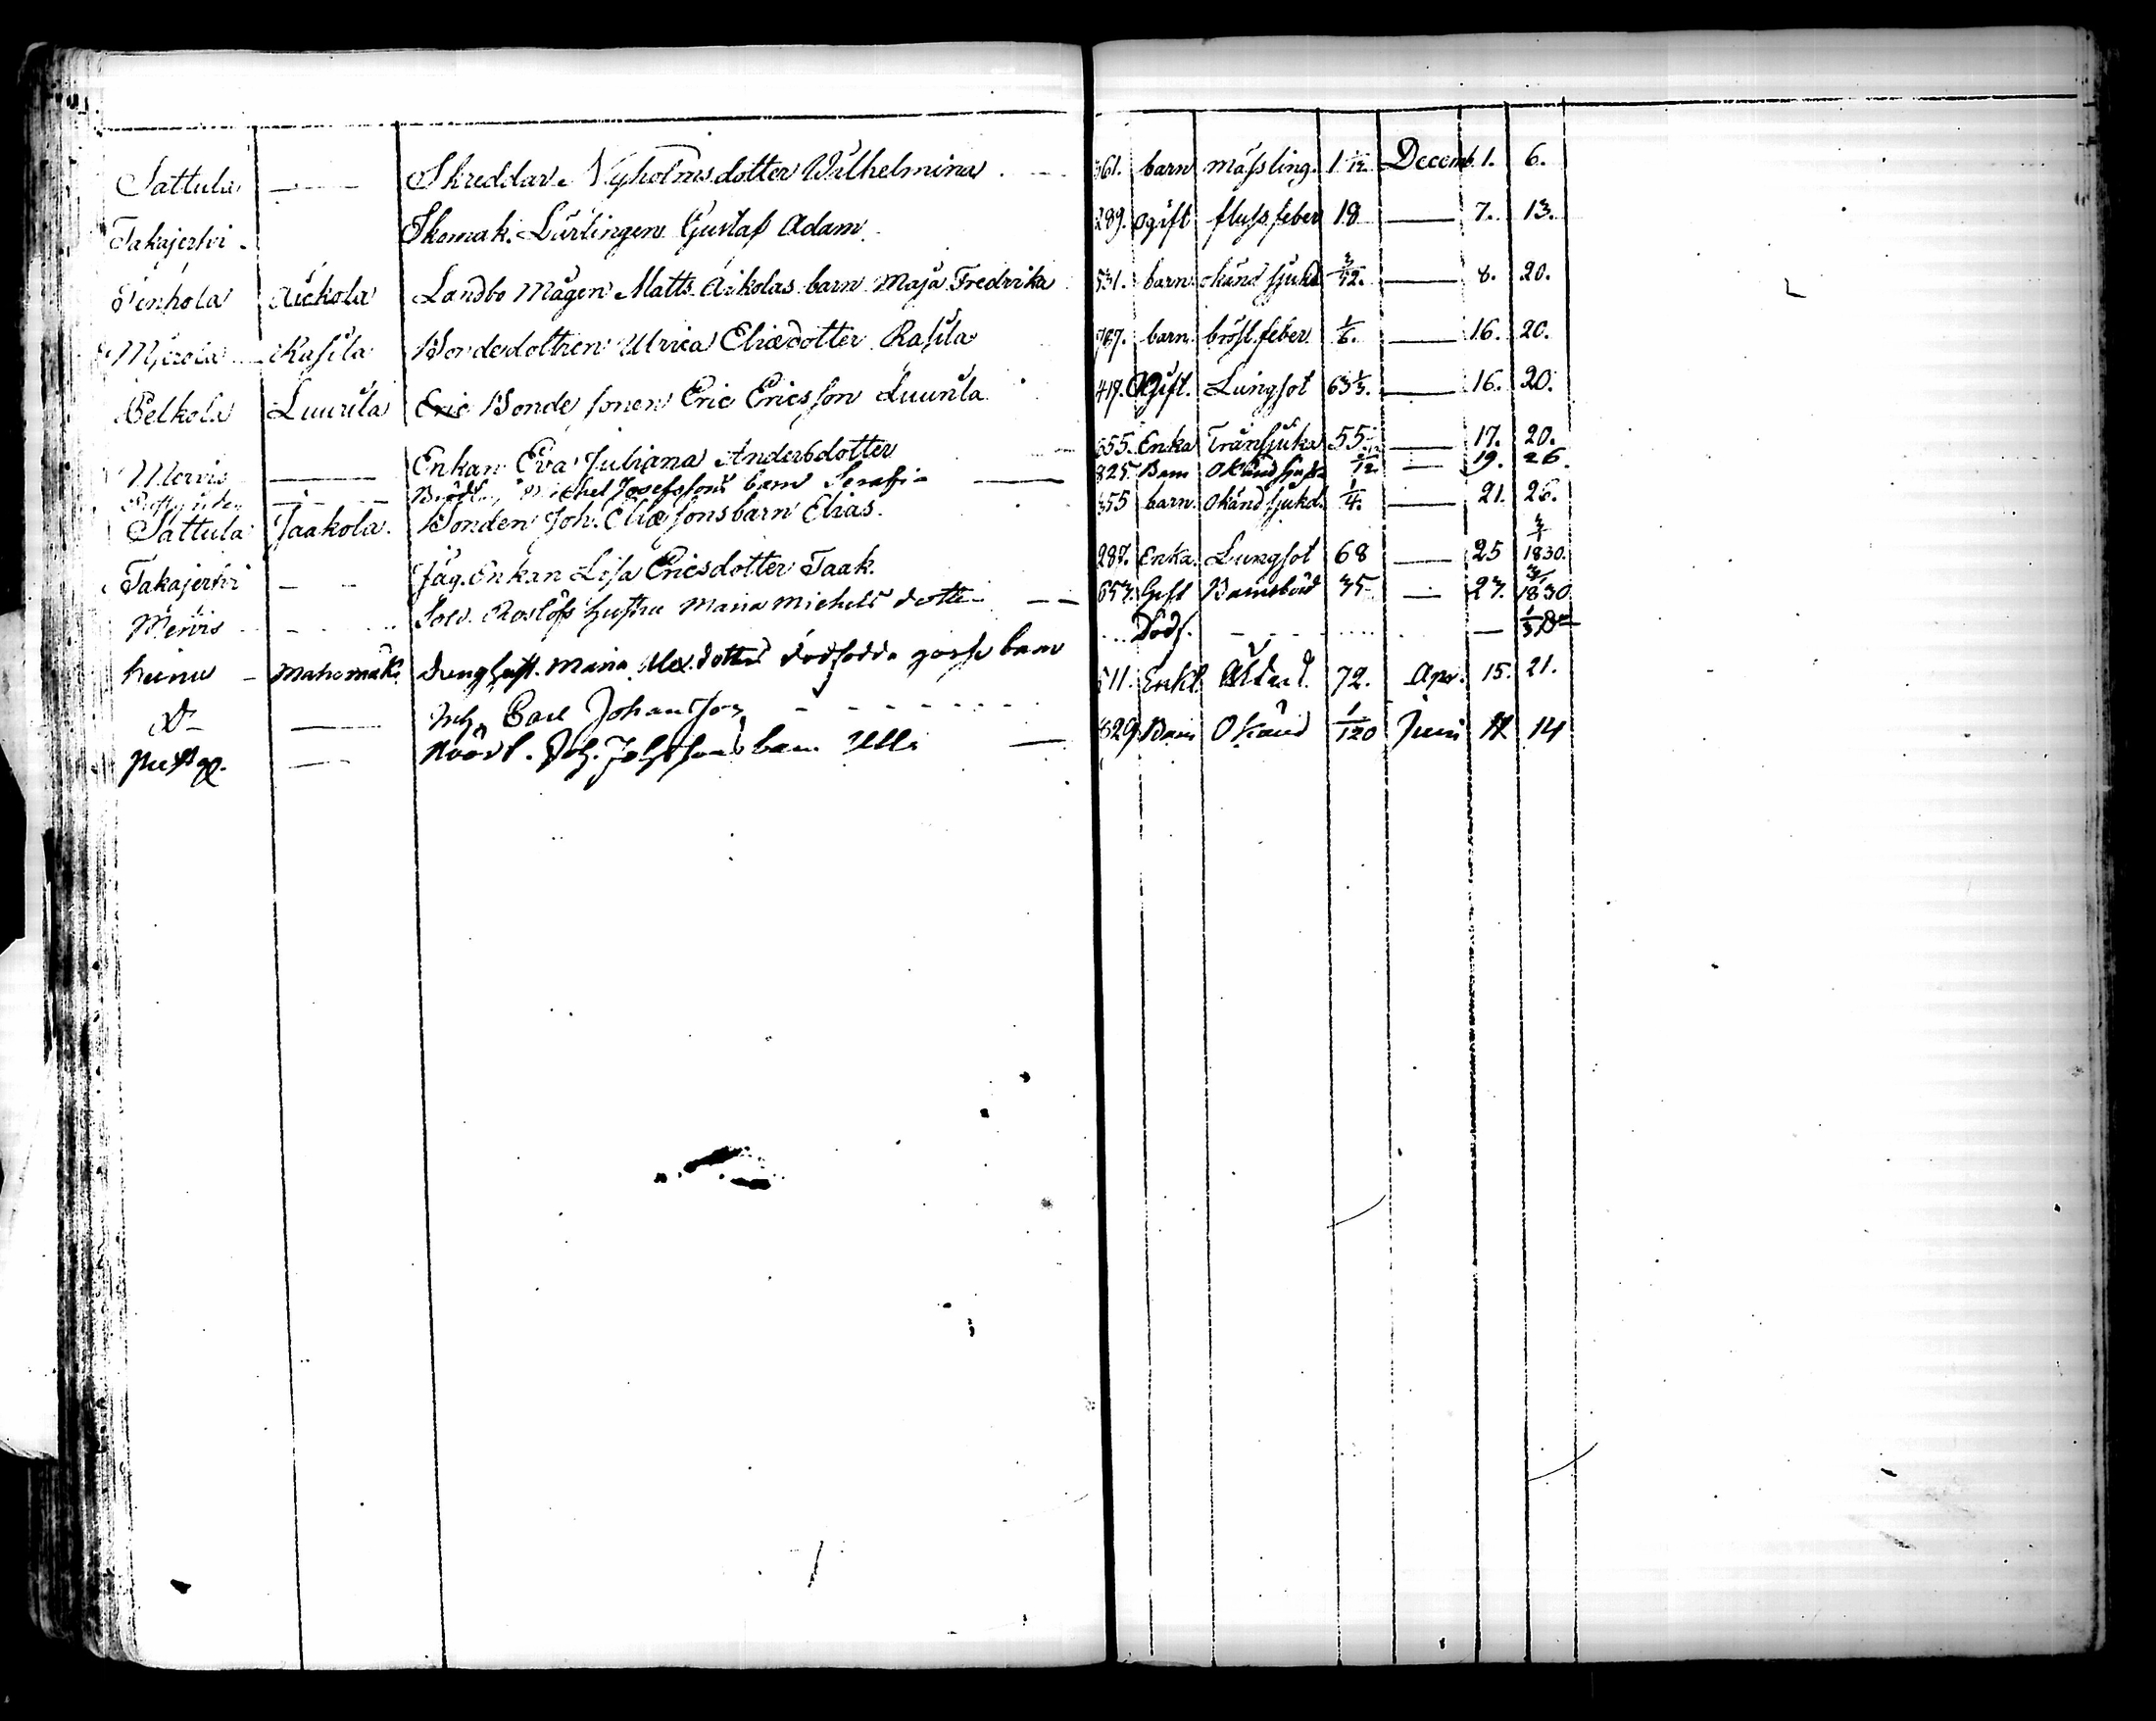 Sattula — Skreddar Nyholms dotter Wilhelmina 361. barn mässling. 1 1/12 Decemb. 1. 6.
Takajerfvi Skomak. Lärlingen Gustaf Adam 289. Ogift fluss feber 18 — 7. 13.
Penhola Aickola Landbo Mågen Matts Aikolas barn Maja Fredrika 531. barn okänd sjukd 3/12. — 8. 20.
Rasila Bondedottren Ulrica Eliædotter Rasila 767. barn. bröst feber 1/6. — 16. 20.
Pelkola Luurila Eric Bonde sonen Eric Ericsson Luurila 417. Ogift. Lungsot 63 1/3. — 16. 20.
Mervis — Enkan Eva Juliana Andersdotter 555. Enka Tränsjuka 55 — 17. 20.
Michel Josefssons barn Serafia — 825. Barn Okänd sjukd — 19. 26.
Sattula Jaakola. Bonden Joh. Eliæsons barn Elias. 355 barn. Okänd sjukd. 1/4. — 21. 26.
Takajerfvi — Jäg. Enkan Lisa Ericsdotter Taak. 287. Enka. Lungsot 68 — 25 3/1 1830.
Mervis Sold. Roslöfs hustru Maria Michels dotter — 653. Gift Barnsbörd 35 — 27. 3/1 1830
heinu — Mahomäki drenghust. Maria Alex. dotters dödfödda gosse barn Dödf. —
d:o — Inh. Carl Johansson 511. Enkl. Ålderd. 72. Apr. 15. 21.
— Joh. Johssons barn Ulla — 829 Barn Okänd 1/120 Juni 11 14